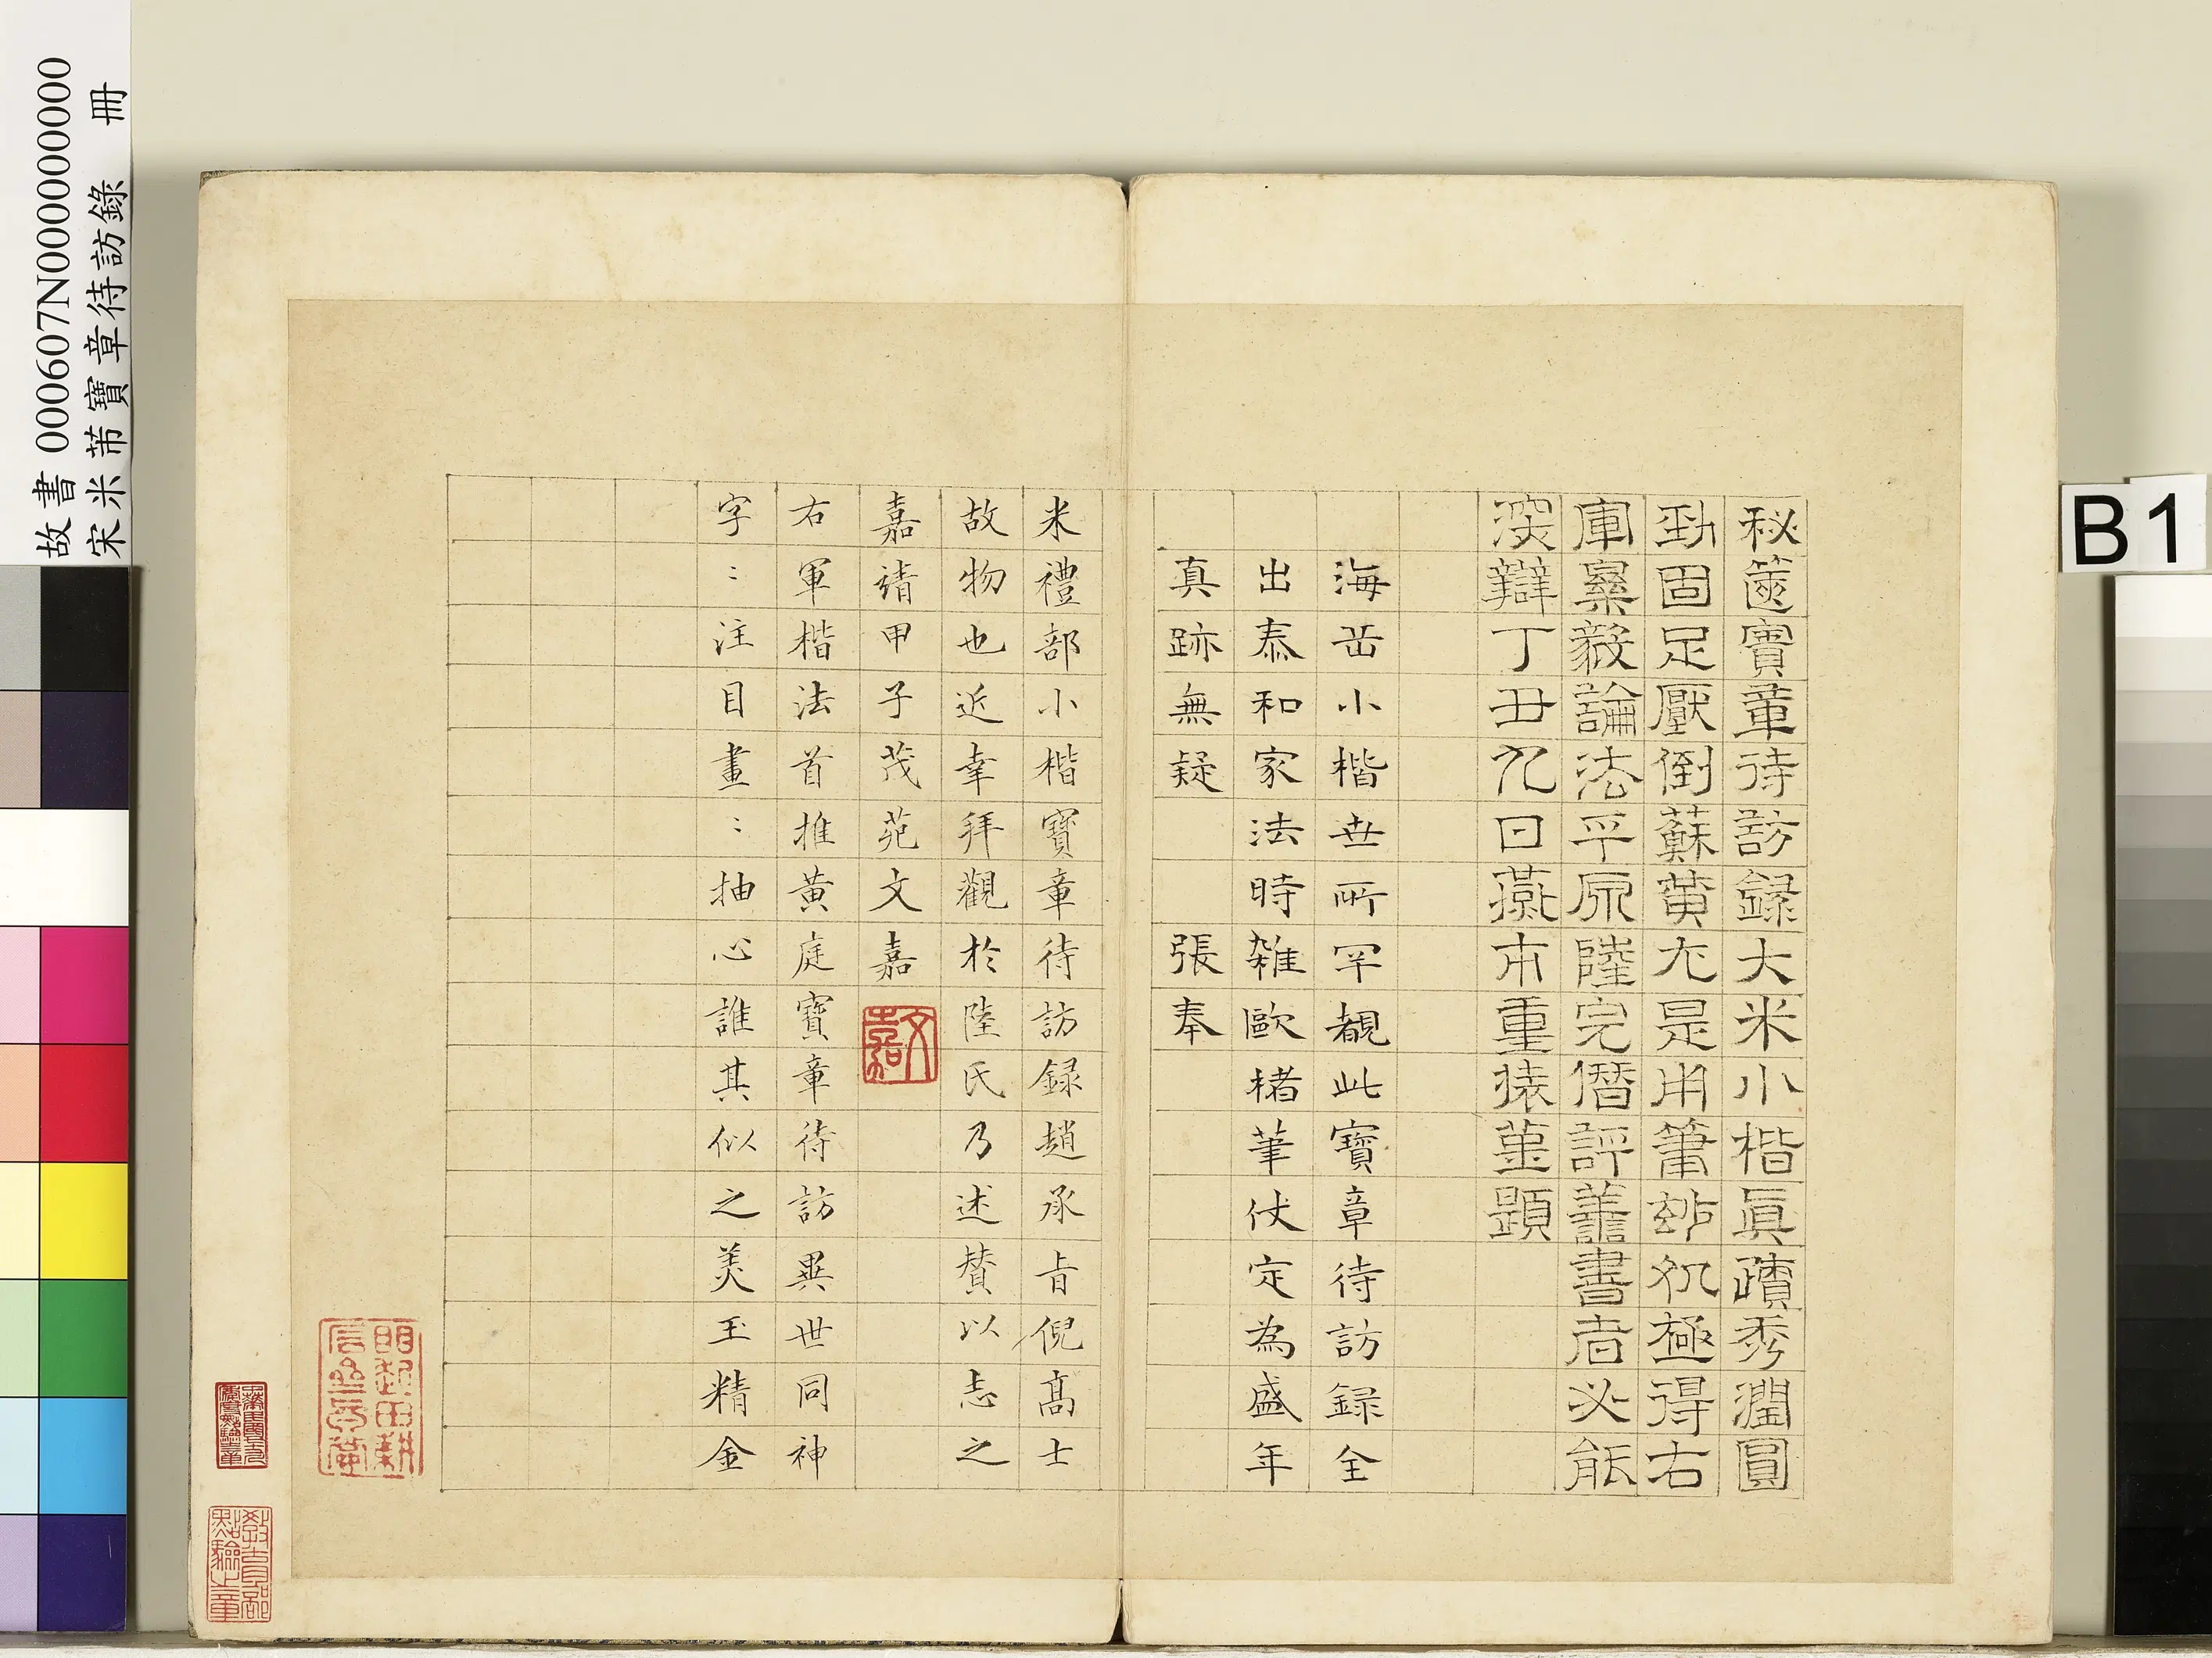 秘篋寶章待訪録大米小楷眞蹟秀潤圓
勁固足壓倒蘇黄尤是用筆玅處極得右
軍樂毅論法平原陸完僭評善書者必能
深辯丁丑九日燕市重裝謹題
海岳小楷世所罕覩此寶章待訪録全
出泰和家法時雜歐褚筆伏定為盛年
真跡無疑 張奉
米禮部小楷寶章待訪録趙承旨倪髙士
故物也近幸拜觀於陸氏乃述賛以志之
嘉靖甲子茂苑文嘉
文嘉
右軍楷法首推黄庭寶章待訪異世同神
字:注目畫:抽心誰其似之美玉精金
教育部點驗之章
故書 000607N000000000
宋米芾寶章待訪錄 冊
B1